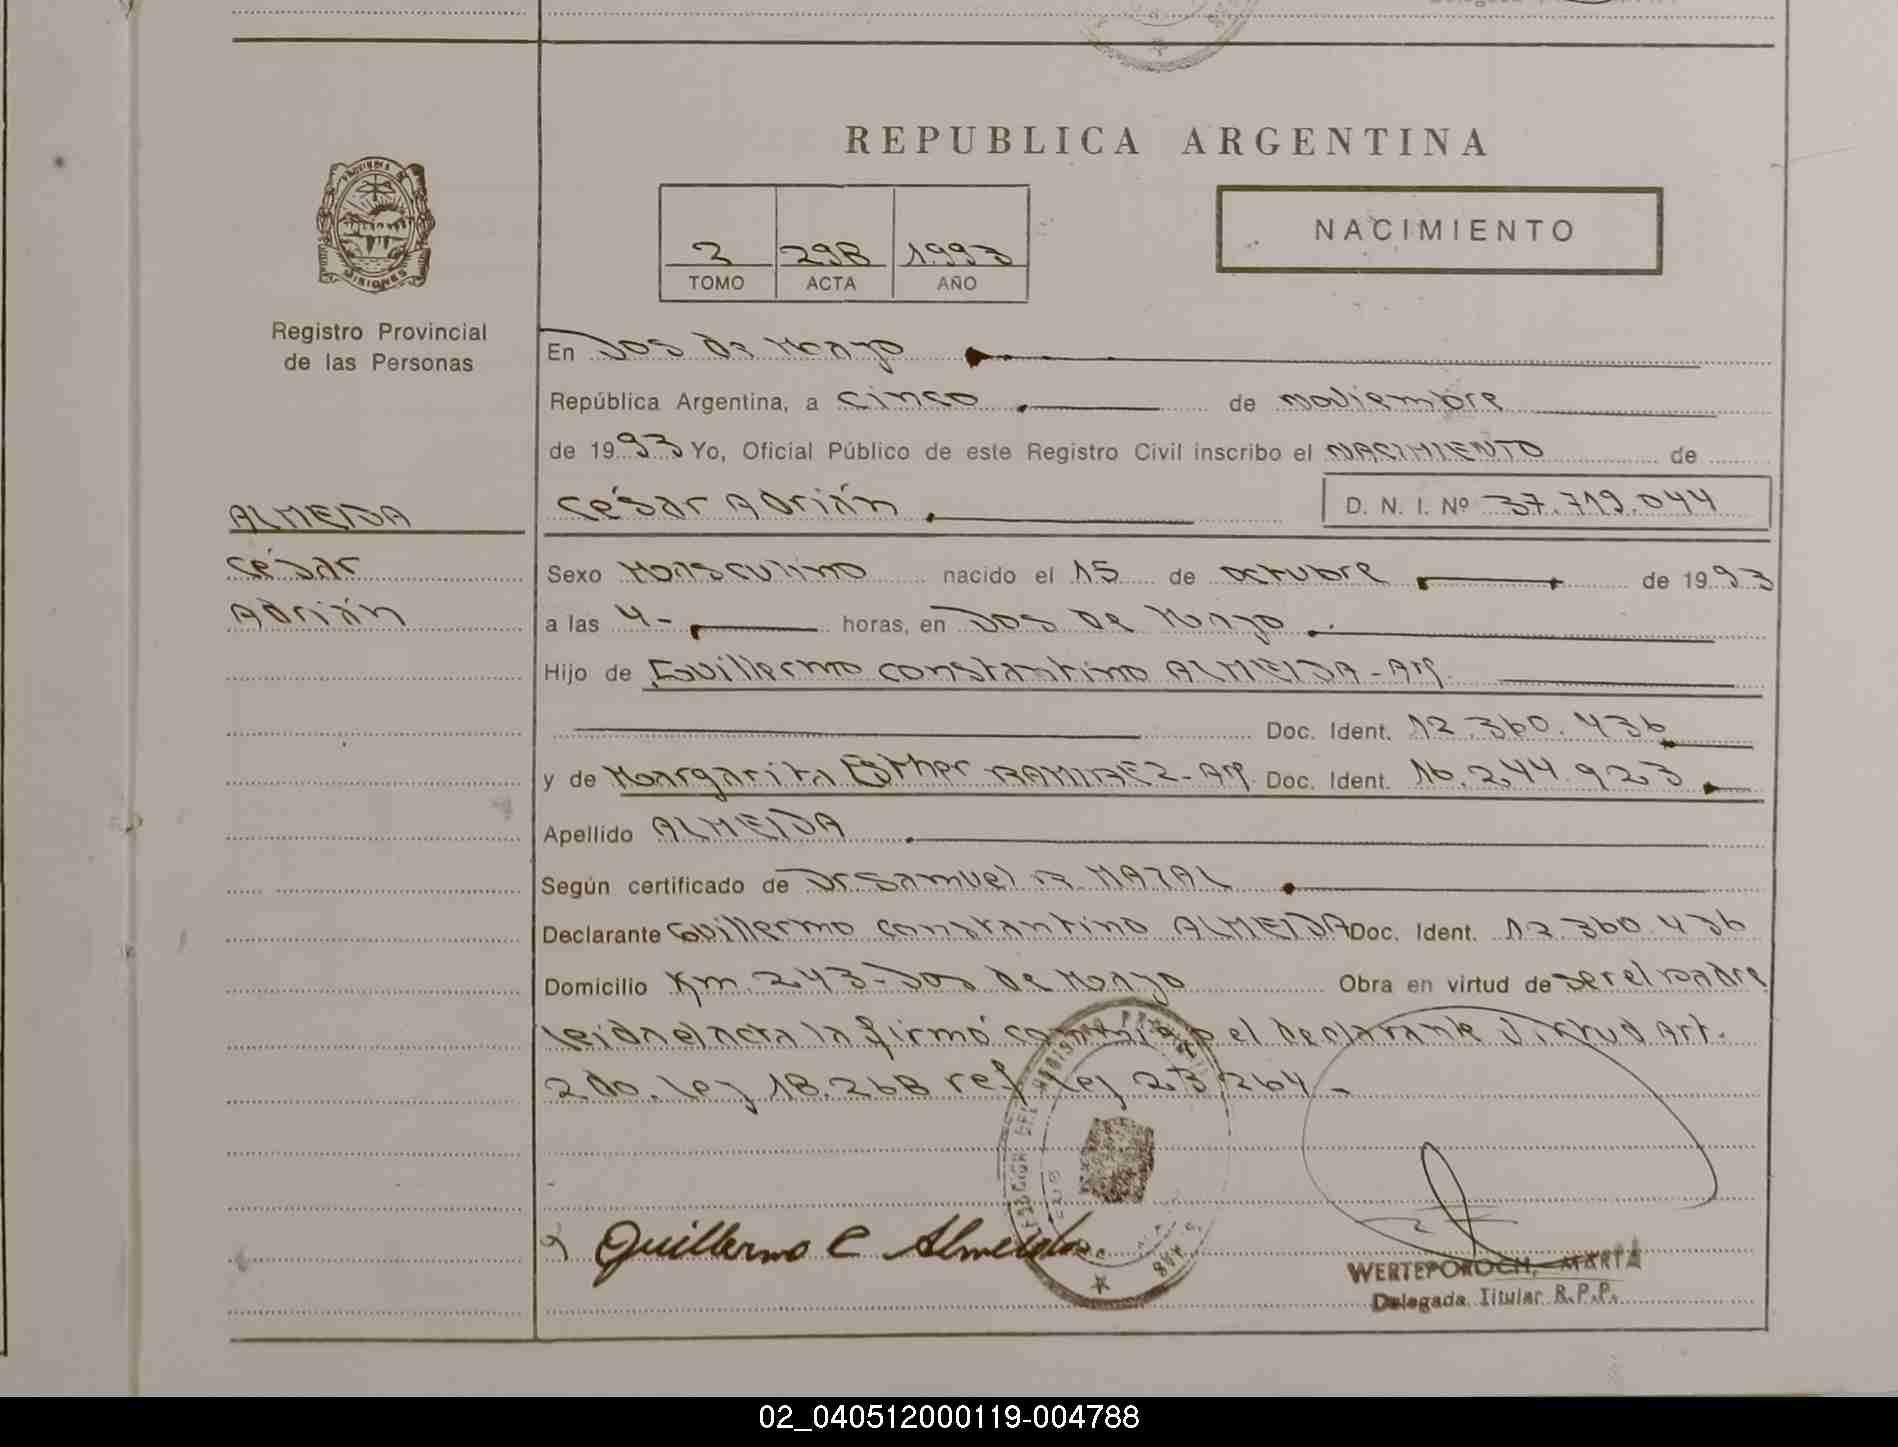 REPUBLICA ARGENTINA
NACIMIENTO
2 298 1993
TOMO ACTA AÑO
Registro Provincial
de las Personas
En Dos de Mayo
República Argentina, a cinco de noviembre
de 1993 Yo, Oficial Público de este Registro Civil inscribo el NACIMIENTO de
César Adrián D. N. I. Nº 37.719.044
ALMEIDA
César
Adrián
Sexo Masculino nacido el 15 de octubre de 1993
a las 4- horas, en Dos de Mayo
Hijo de Guillermo Constantino ALMEIDA - Arg.
Doc. Ident. 12.360.436
y de Margarita Esther RAMIREZ - Arg. Doc. Ident. 16.244.923
Apellido ALMEIDA
Según certificado de Dr Samuel R.
Declarante Guillermo Constantino ALMEIDA Doc. Ident. 12.360.436
Domicilio Km. 243 - Dos de Mayo Obra en virtud de ser el padre
leida el acta la firmó conmigo el declarante Virtud Art.
2do. ley 18.268 ref ley 23264 -
Guillermo C Almeida.
WERTEPOROCH, MARTA
Delegada Titular R.P.P.
02_040512000119-004788